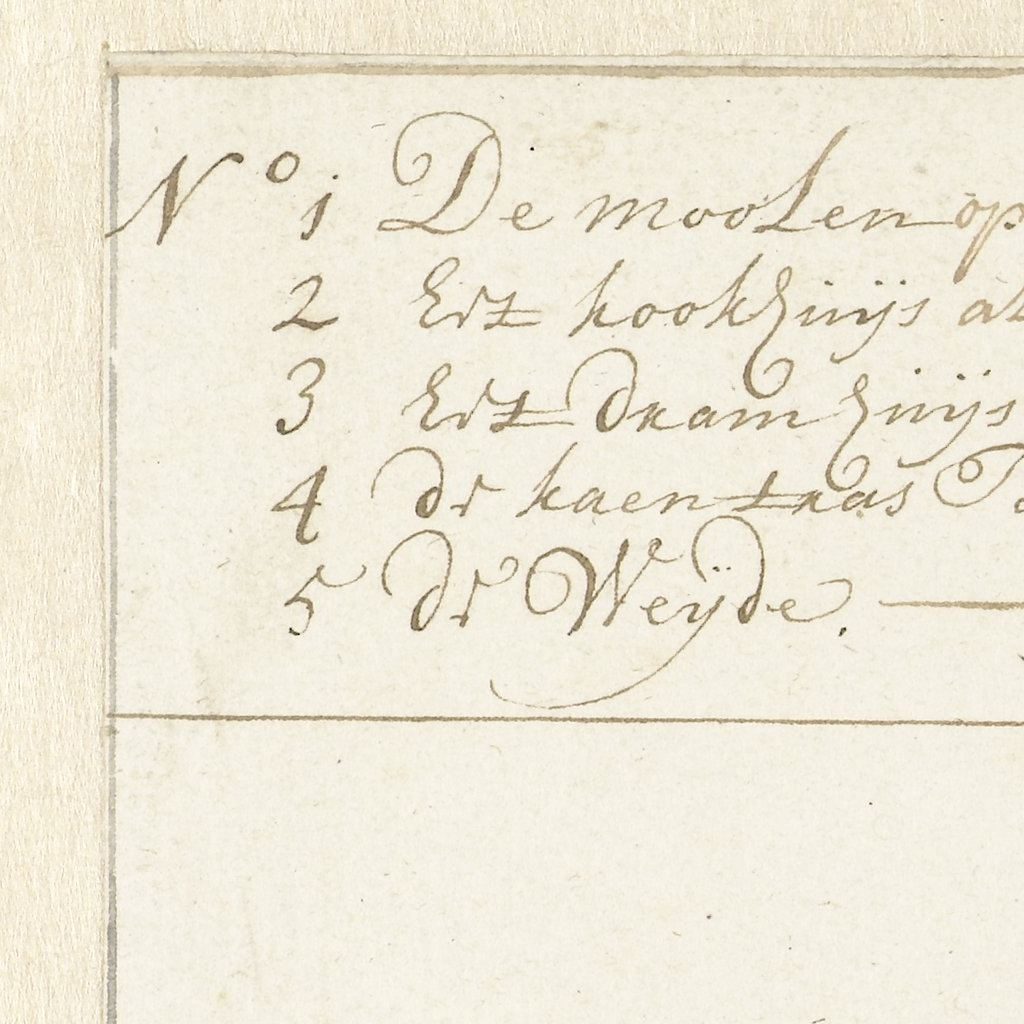 No 1 De moolen op
2 Het kookhuijs al
3 Het dram huijs
4 de kaen tras
5 de Weyde.